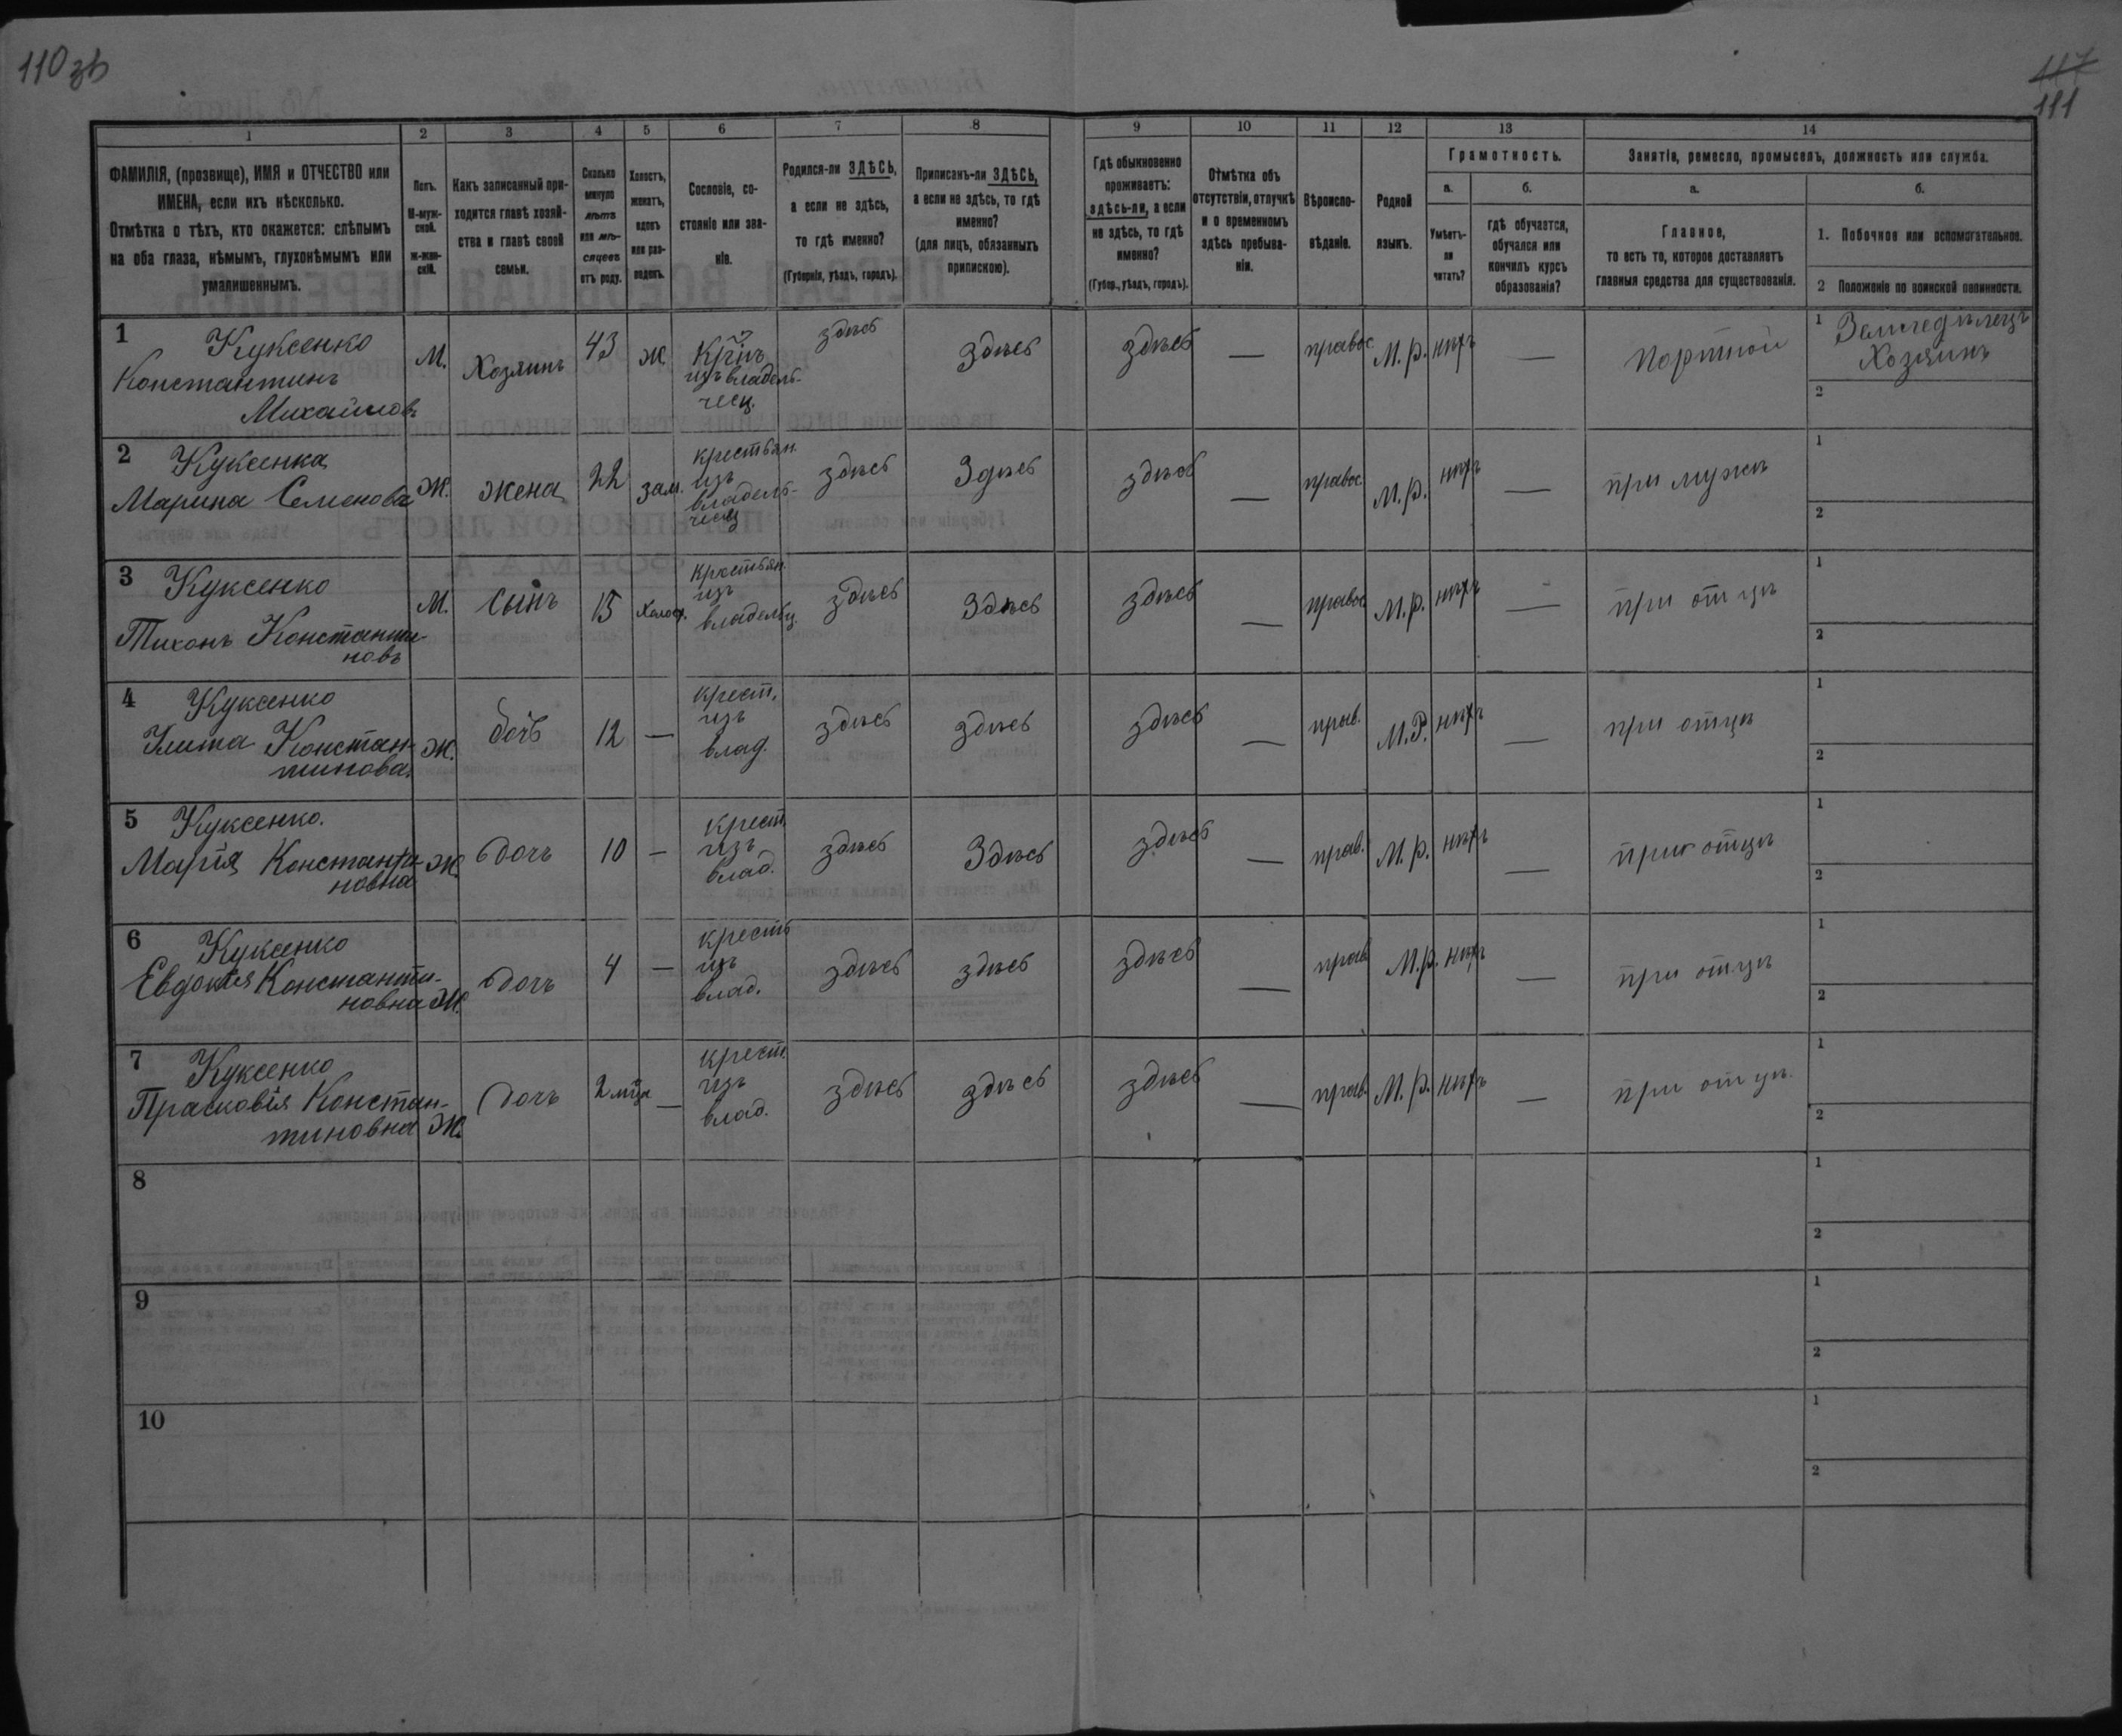 110 зв
117
111
1 2 3 4 5 6 7 8 9 10 11 12 13 14
ФАМИЛІЯ, (прозвище), ИМЯ и ОТЧЕСТВО или
ИМЕНА, если ихъ нѣсколько.
Отмѣтка о тѣхъ, кто окажется: слѣпымъ
на оба глаза, нѣмымъ, глухонѣмымъ или
умалишеннымъ.
Полъ.
М-муж-
ской.
Ж-жен-
скій.
Какъ записанный при-
ходится главѣ хозяй-
ства и главѣ своей
семьи.
Сколько
минуло
лѣтъ
или мѣ-
сяцевъ
отъ роду.
Холостъ,
женатъ,
вдовъ
или раз-
веденъ.
Сословіе, со-
стояніе или зва-
ніе.
Родился-ли ЗДѢСЬ,
а если не здѣсь,
то гдѣ именно?
(Губернія, уѣздъ, городъ).
Приписанъ-ли ЗДѢСЬ,
а если не здѣсь, то гдѣ
именно?
(для лицъ, обязанныхъ
припискою).
Гдѣ обыкновенно
проживаетъ:
здѣсь-ли, а если
не здѣсь, то гдѣ
именно?
(Губер., уѣздъ, городъ).
Отмѣтка объ
отсутствіи, отлучкѣ
и о временномъ
здѣсь пребыва-
ніи.
Вѣроиспо-
вѣданіе.
Родной
языкъ.
Грамотность.
а.
Умѣетъ-
ли
читать?
б.
гдѣ обучается,
обучался или
кончилъ курсъ
образованія?
Занятіе, ремесло, промыселъ, должность или служба.
а.
Главное,
то есть то, которое доставляетъ
главныя средства для существованія.
б.
1. Побочное или вспомогательное.
2 Положеніе по воинской повинности.
1 Куксенко
Константинъ
Михайловъ
М.
Хозяинъ
43
Ж
Кр-нъ
изъ владель-
чесц.
здѣсь
Здѣсь
здѣсь
—
правос
М. р.
нѣтъ
—
Портной
1 Земледѣлецъ
Хозяинъ
2
2 Куксенка
Марина Семенова
Ж.
жена
22
зам.
крестьян.
изъ
владель-
чесц
здѣсь
Здѣсь
здѣсь
—
правос.
М. р.
нѣтъ
—
при мужѣ
1
2
3 Куксенко
Тихонъ Константи-
новъ
М.
Сынъ
15
Холос.
Крестьян.
изъ
владельц.
здѣсь
Здѣсь
здѣсь
—
правос
М. р.
нѣтъ
—
при отцѣ
1
2
4 Куксенко
Улита Констан-
тинова
Ж.
дочь
12
—
Крест.
изъ
влад.
здѣсь
здѣсь
здѣсь
—
прав.
М. Р.
нѣтъ
—
при отцѣ
1
2
5 Куксенко.
Марія Константи-
новна
Ж.
дочь
10
—
крест.
изъ
влад.
здѣсь
Здѣсь
здѣсь
—
прав.
М. р.
нѣтъ
—
при отцѣ
1
2
6 Куксенко
Евдокія Константи-
новна
Ж.
дочь
4
—
крестъ
изъ
влад.
здѣсь
здѣсь
здѣсь
—
прав
М. р.
нѣтъ
—
при отцѣ
1
2
7 Куксенко
Прасковія Констан-
тиновна
Ж.
дочь
2 мца
—
крест.
изъ
влад.
здѣсь
здѣсь
здѣсь
—
прав.
М. р.
нѣтъ
—
при отцѣ.
1
2
8
1
2
9
1
2
10
1
2